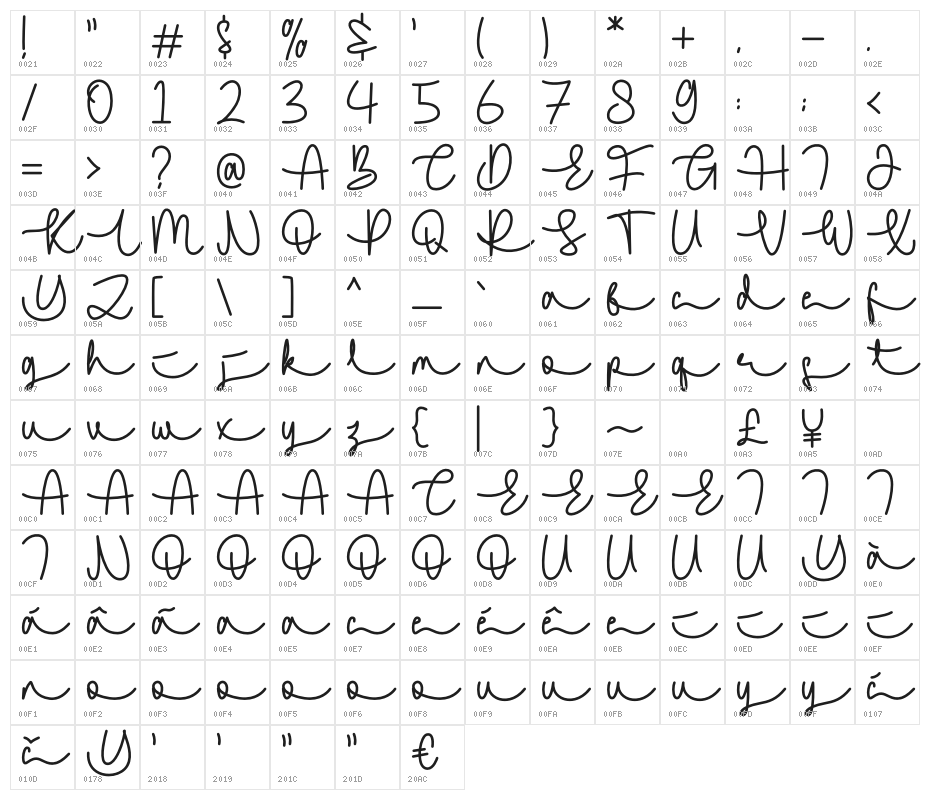 ! " # $ % & ' ( ) * + , - .
0021 0022 0023 0024 0025 0026 0027 0028 0029 002A 002B 002C 002D 002E
/ 0 1 2 3 4 5 6 7 8 9 : ; <
002F 0030 0031 0032 0033 0034 0035 0036 0037 0038 0039 003A 003B 003C
= > ? @ A B C D E F G H I J
003D 003E 003F 0040 0041 0042 0043 0044 0045 0046 0047 0048 0049 004A
K L M N O P Q R S T U V W X
004B 004C 004D 004E 004F 0050 0051 0052 0053 0054 0055 0056 0057 0058
Y Z [ \ ] ^ _ ` a b c d e f
0059 005A 005B 005C 005D 005E 005F 0060 0061 0062 0063 0064 0065 0066
g h i j k l m n o p q r s t
0067 0068 0069 006A 006B 006C 006D 006E 006F 0070 0071 0072 0073 0074
u v w x y z { | } ~ £ ¥
0075 0076 0077 0078 0079 007A 007B 007C 007D 007E 00A0 00A3 00A5 00AD
A A A A A A C E E E E I I I
00C0 00C1 00C2 00C3 00C4 00C5 00C7 00C8 00C9 00CA 00CB 00CC 00CD 00CE
I N O O O O O O U U U U Y à
00CF 00D1 00D2 00D3 00D4 00D5 00D6 00D8 00D9 00DA 00DB 00DC 00DD 00E0
á â ã a a c e é ê e i i i i
00E1 00E2 00E3 00E4 00E5 00E7 00E8 00E9 00EA 00EB 00EC 00ED 00EE 00EF
n o o o o o o u u u u y y ć
00F1 00F2 00F3 00F4 00F5 00F6 00F8 00F9 00FA 00FB 00FC 00FD 00FF 0107
č Y ' ' " " €
010D 0178 2018 2019 201C 201D 20AC